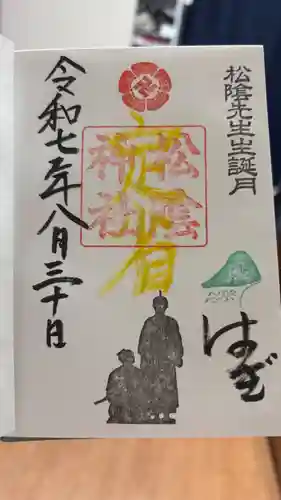 松陰先生生誕月
はぎ
松陰
神社
令和七年八月三十日